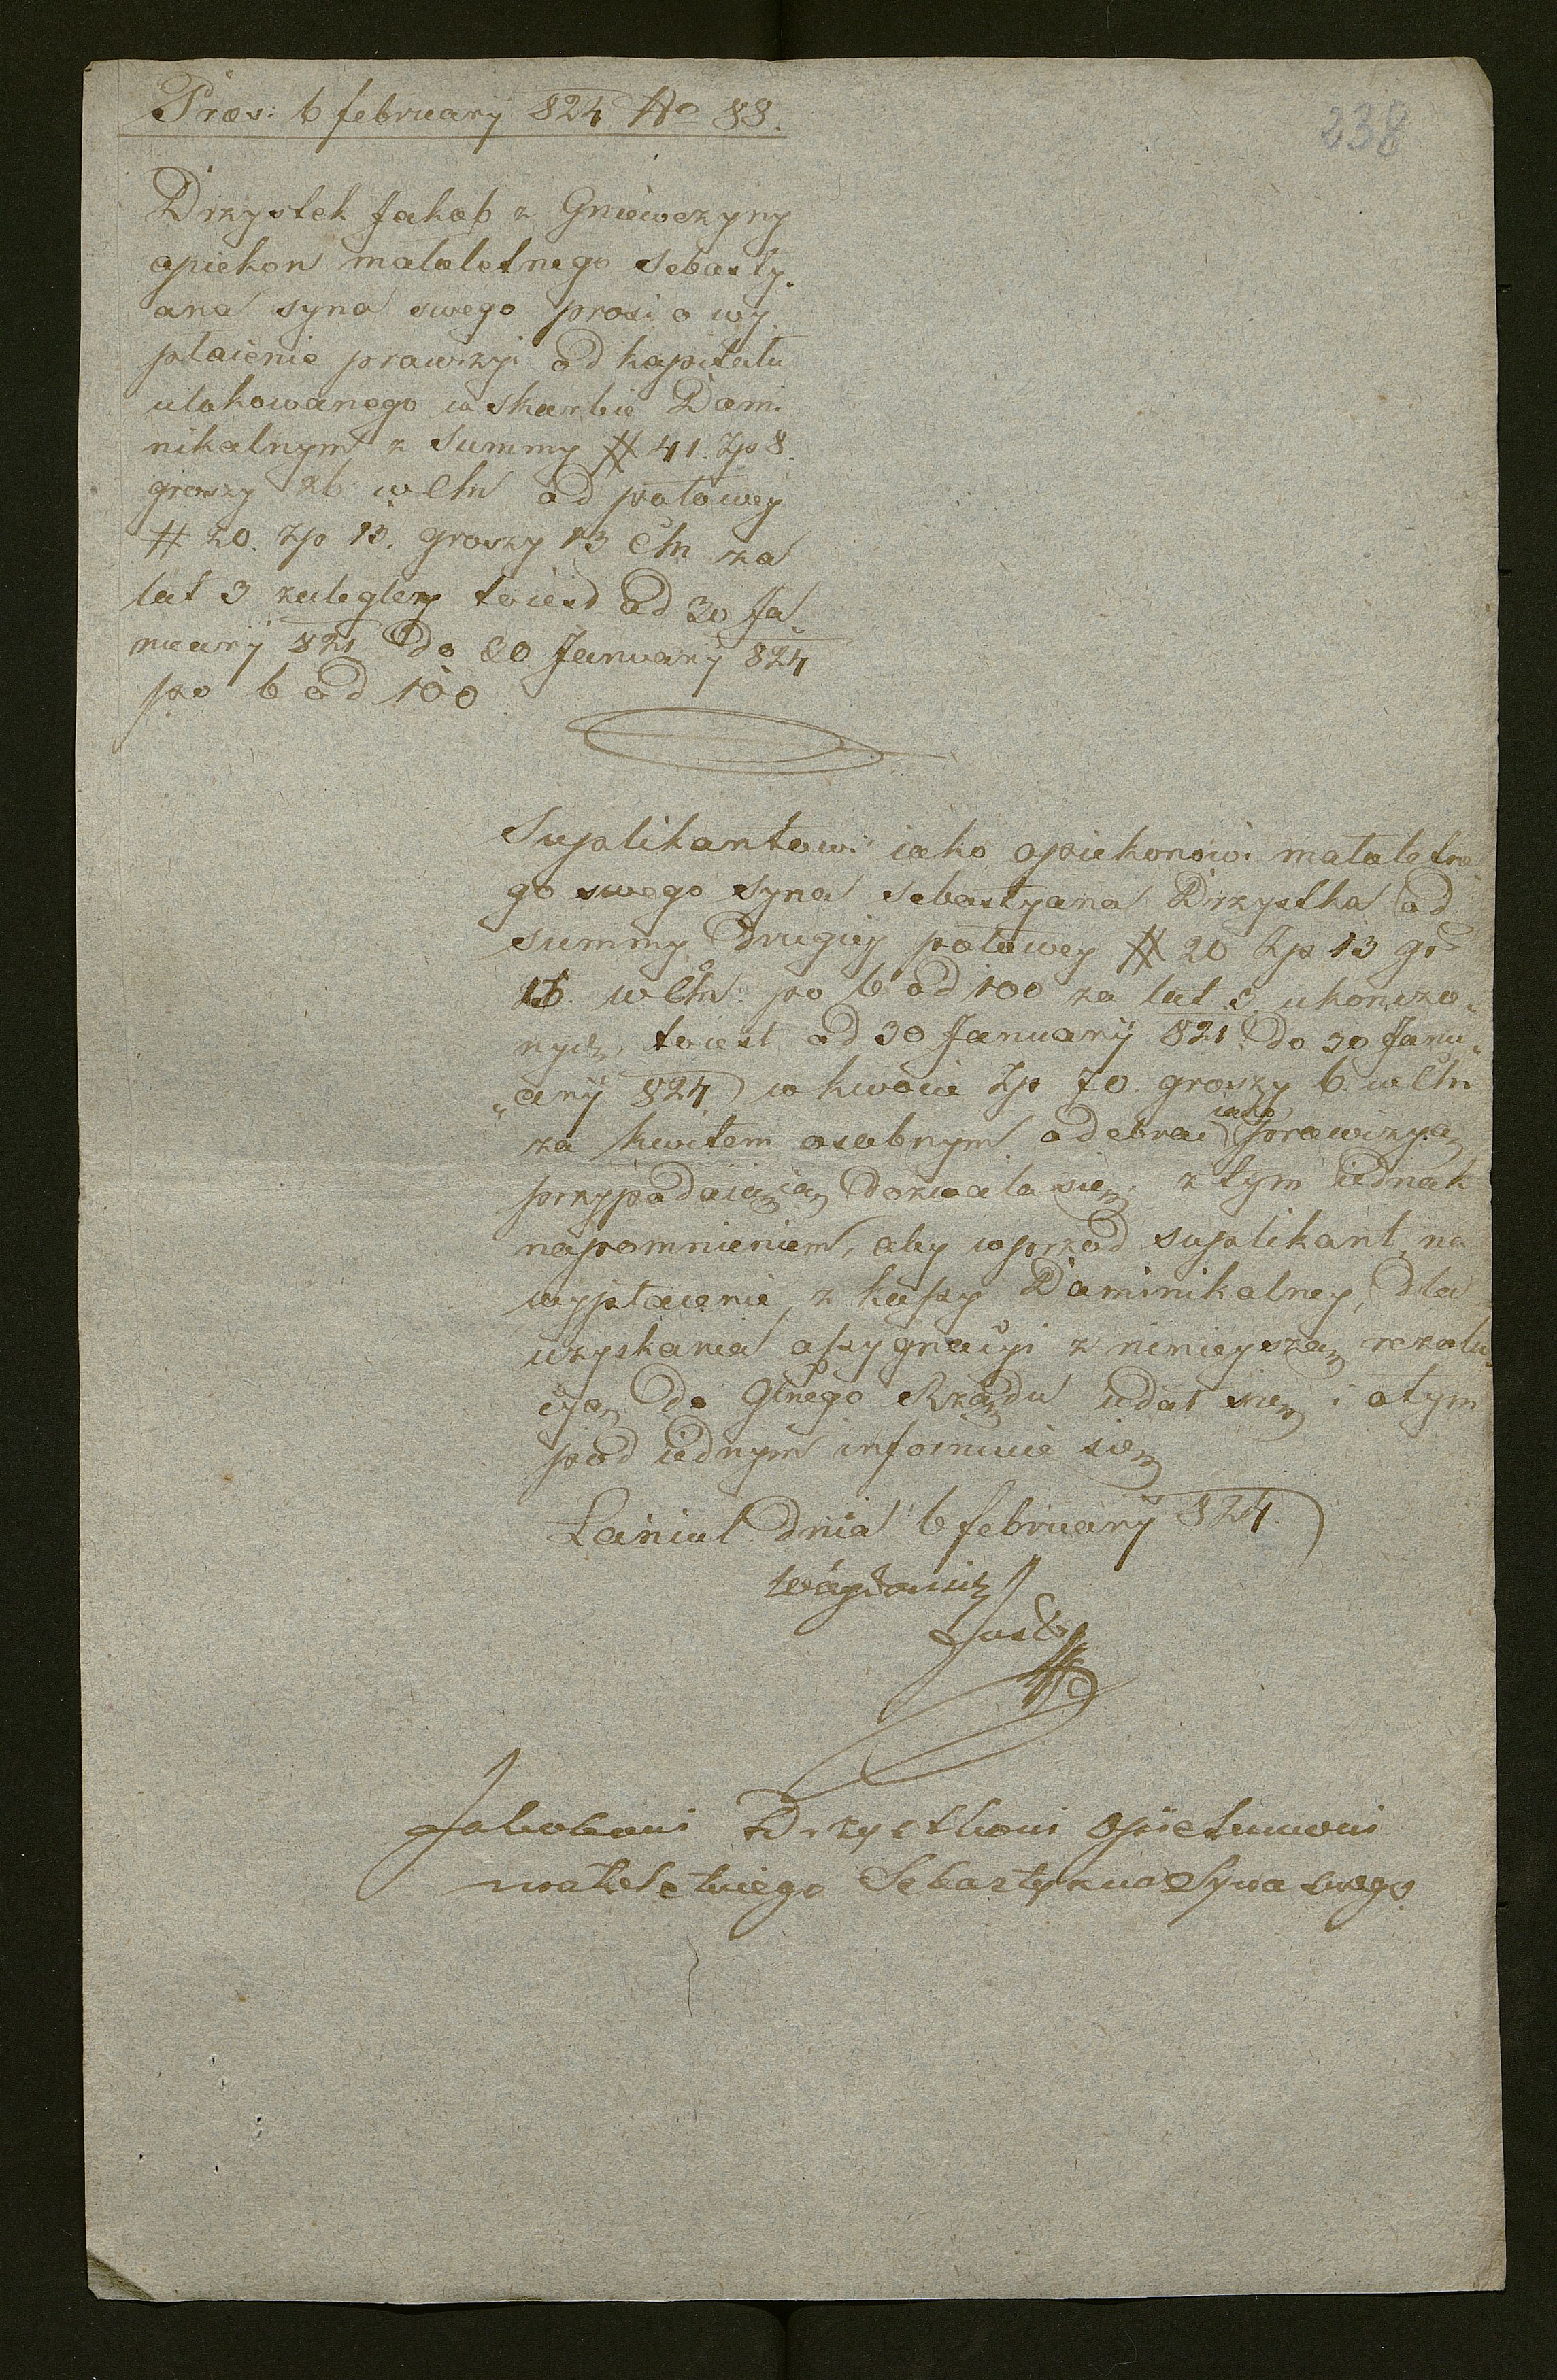 Præs: 6 february 824 No 88.
238
Drzystek Jakob z Gniewczyny
opiekon małoletnego Sebasty-
ana syna swego prosi o wy
płacenie prowizyi od kapitału
ulokowanego w skarbie Domi
nikalnym z Summy # 41. Zp 8.
groszy 26 w Chn od połowey
# 20. Zp 13. groszy 13 Chn za
lat 3 zaległey toiest od 30 Ja
nuary 821 do 30 January 824
po 6 od 100
Suplikantowi iako opiekonowi małoletne
go swego syna Sebastyana Drzystka od
summy drugiey połowey # 20 Zp 13 gr
13. w Chn. po 6 od 100 za lat 3 ukonczo-
nych, toiest od 30 January 821. do 30 Janu-
ary 824 w kwocie Zp 70. groszy 6. w Chn
za kwitem osobnym odebrać iako prowizyą
przypadaiącą dozwala się, z tym iednak
napomnieniem, aby wprzod suplikant, na
wypłacenie, z kassy Dominikalney, dla
uzyskania assygnacyi z ninieyszą rezolu-
cyą do Głnego Rządu udał się i o tym
pod iednym informuie się
Łańcut dnia 6 february 824.
Justy
Jakobowi Drzystkowi Opiekunowi
małoletniego Sebastyana Syna swego